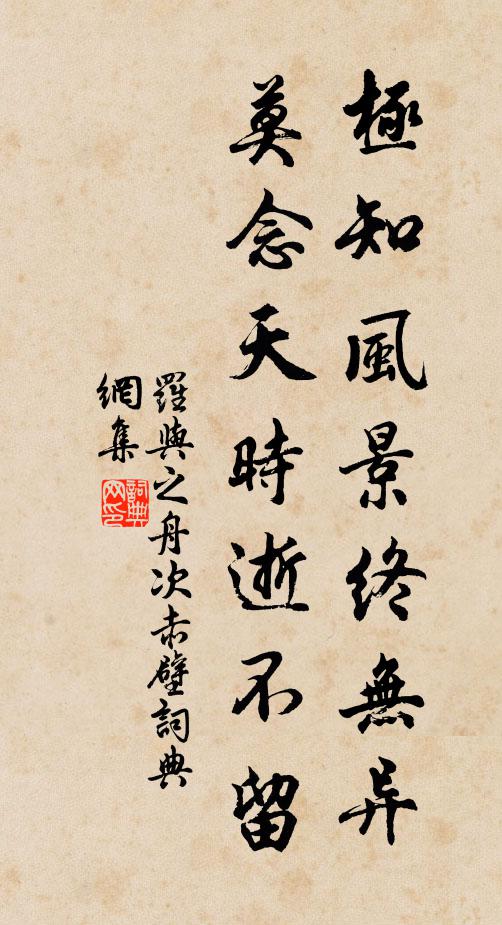 極知風景終無异
莫念天時逝不留
羅與之舟次赤壁詞典
網集
詞典
网印